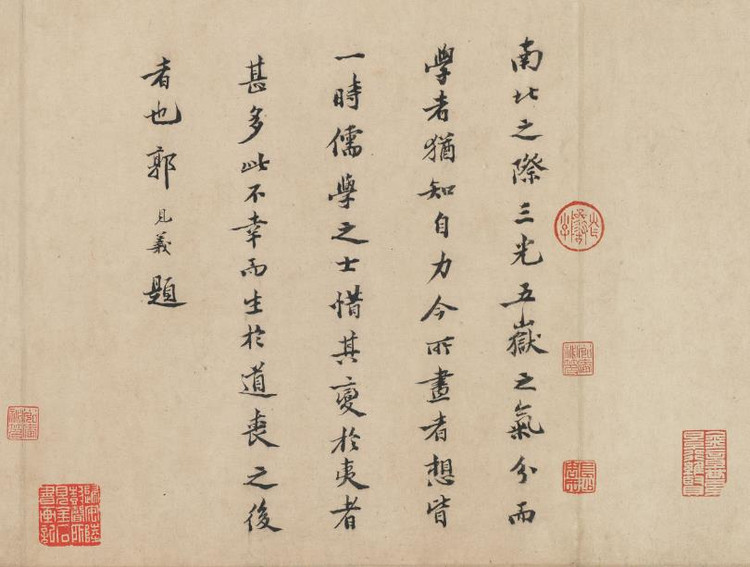 南北之際三光五嶽之氣分而
學者猶知自力今所畫者想皆
一時儒學之士惜其變於夷者
甚多此不幸而生於道喪之後
者也郭見義題